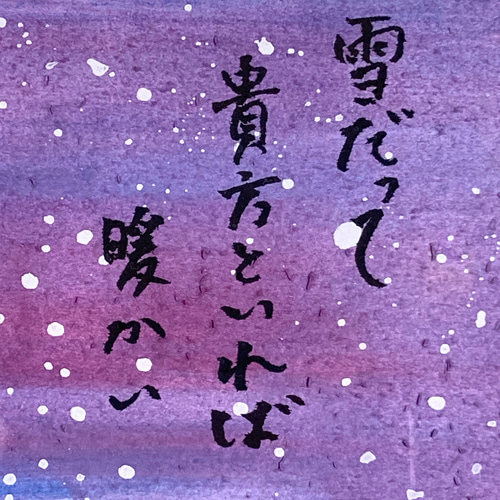 雪だって
貴方といれば
暖かい